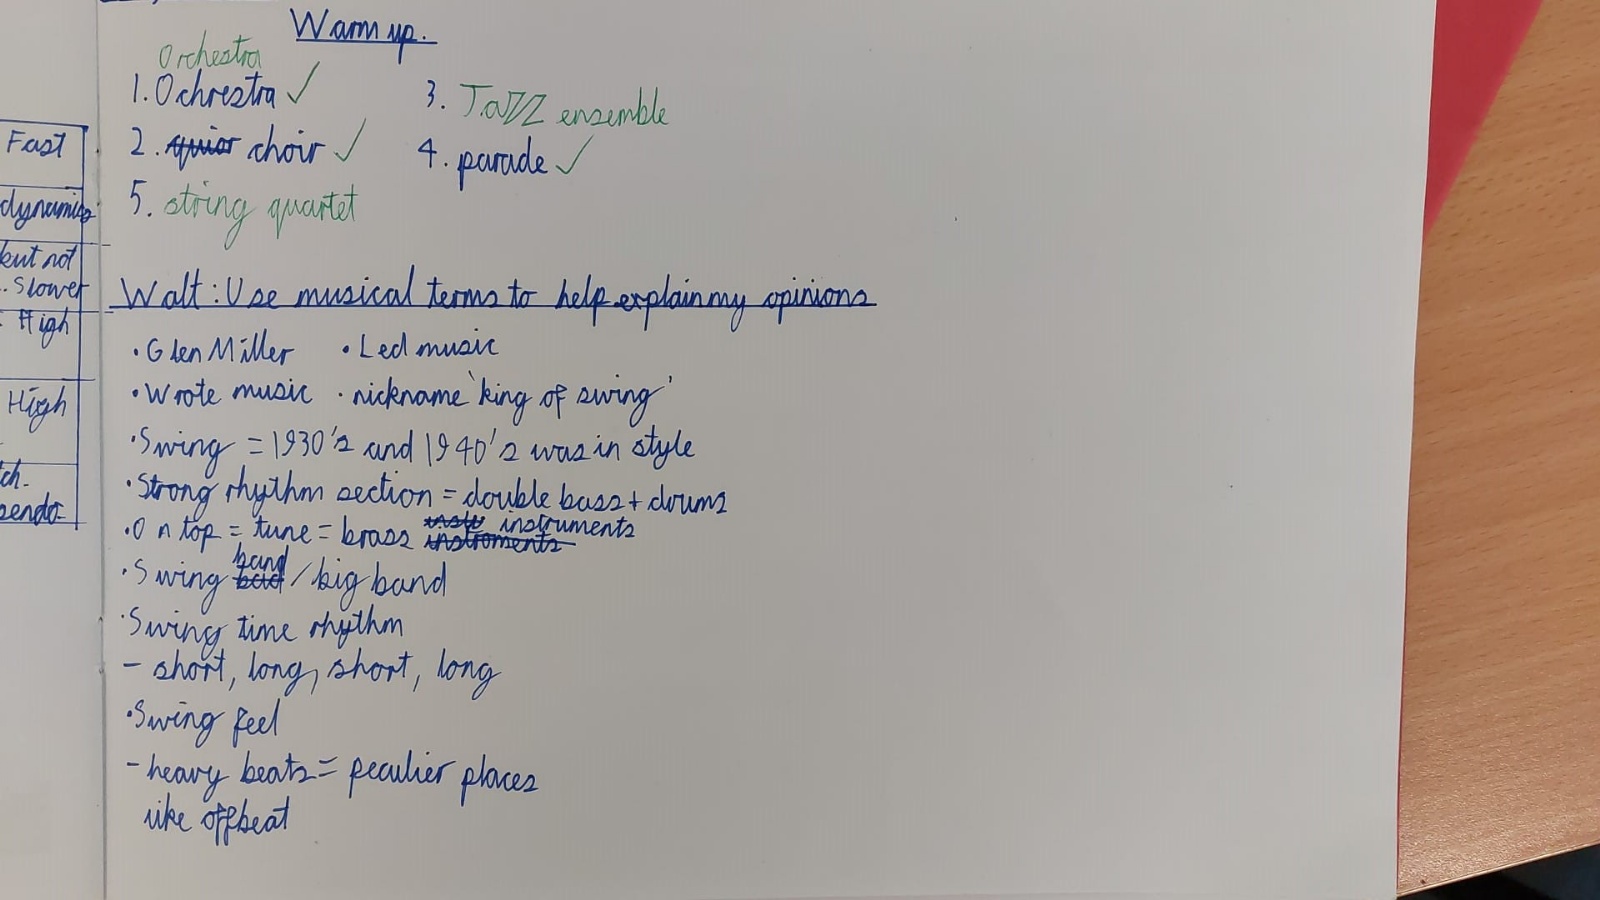 Fast
dynamics
but not
Slower
High
High
tch-
sendo-
Warm up.
Orchestra
1. Ochrestra ✓
3. Jazz ensemble
2. quior choir ✓
4. parade ✓
5. string quartet
Walt: Use musical terms to help explain my opinions
• Glen Miller • Led music
• Wrote music • nickname 'king of swing'
• Swing = 1930's and 1940's was in style
• Strong rhythm section = double bass + drums
• On top = tune = brass instruments
instroments
band
• Swing / big band
• Swing time rhythm
- short, long, short, long
• Swing feel
- heavy beats = peculier places
like offbeat